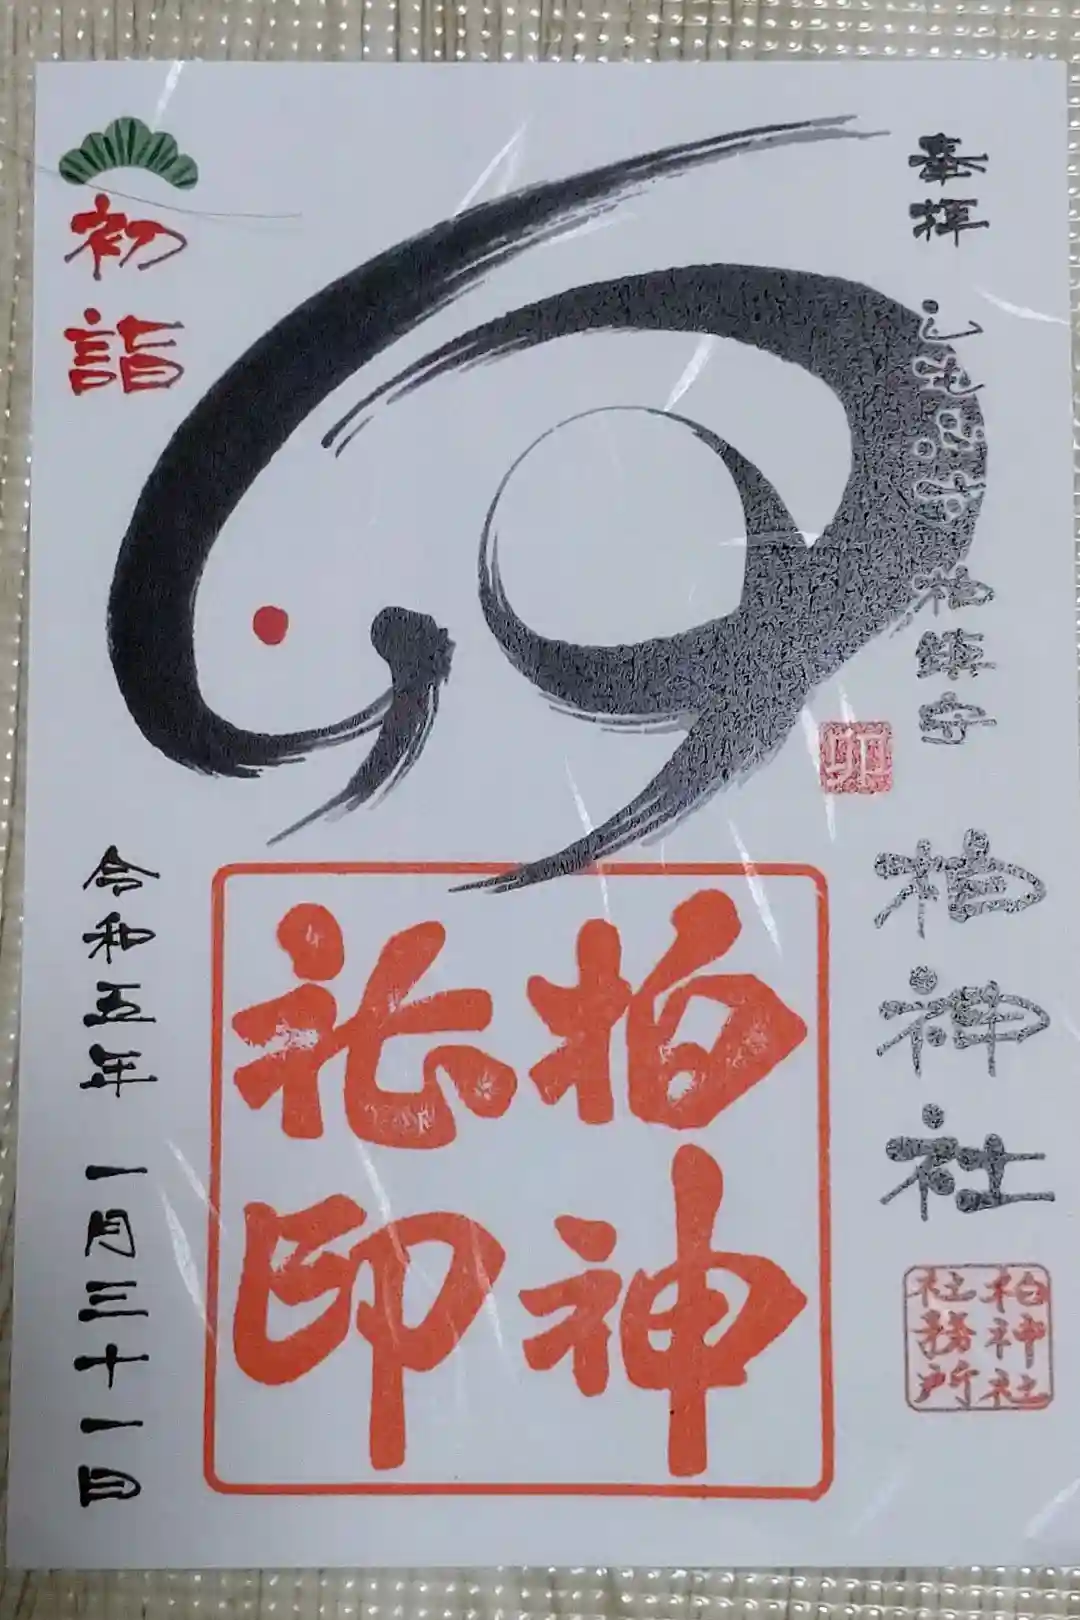 奉拝
鎮守
柏神社
柏神社
社務所
卯
柏神
社印
初詣
令和五年 一月三十一日